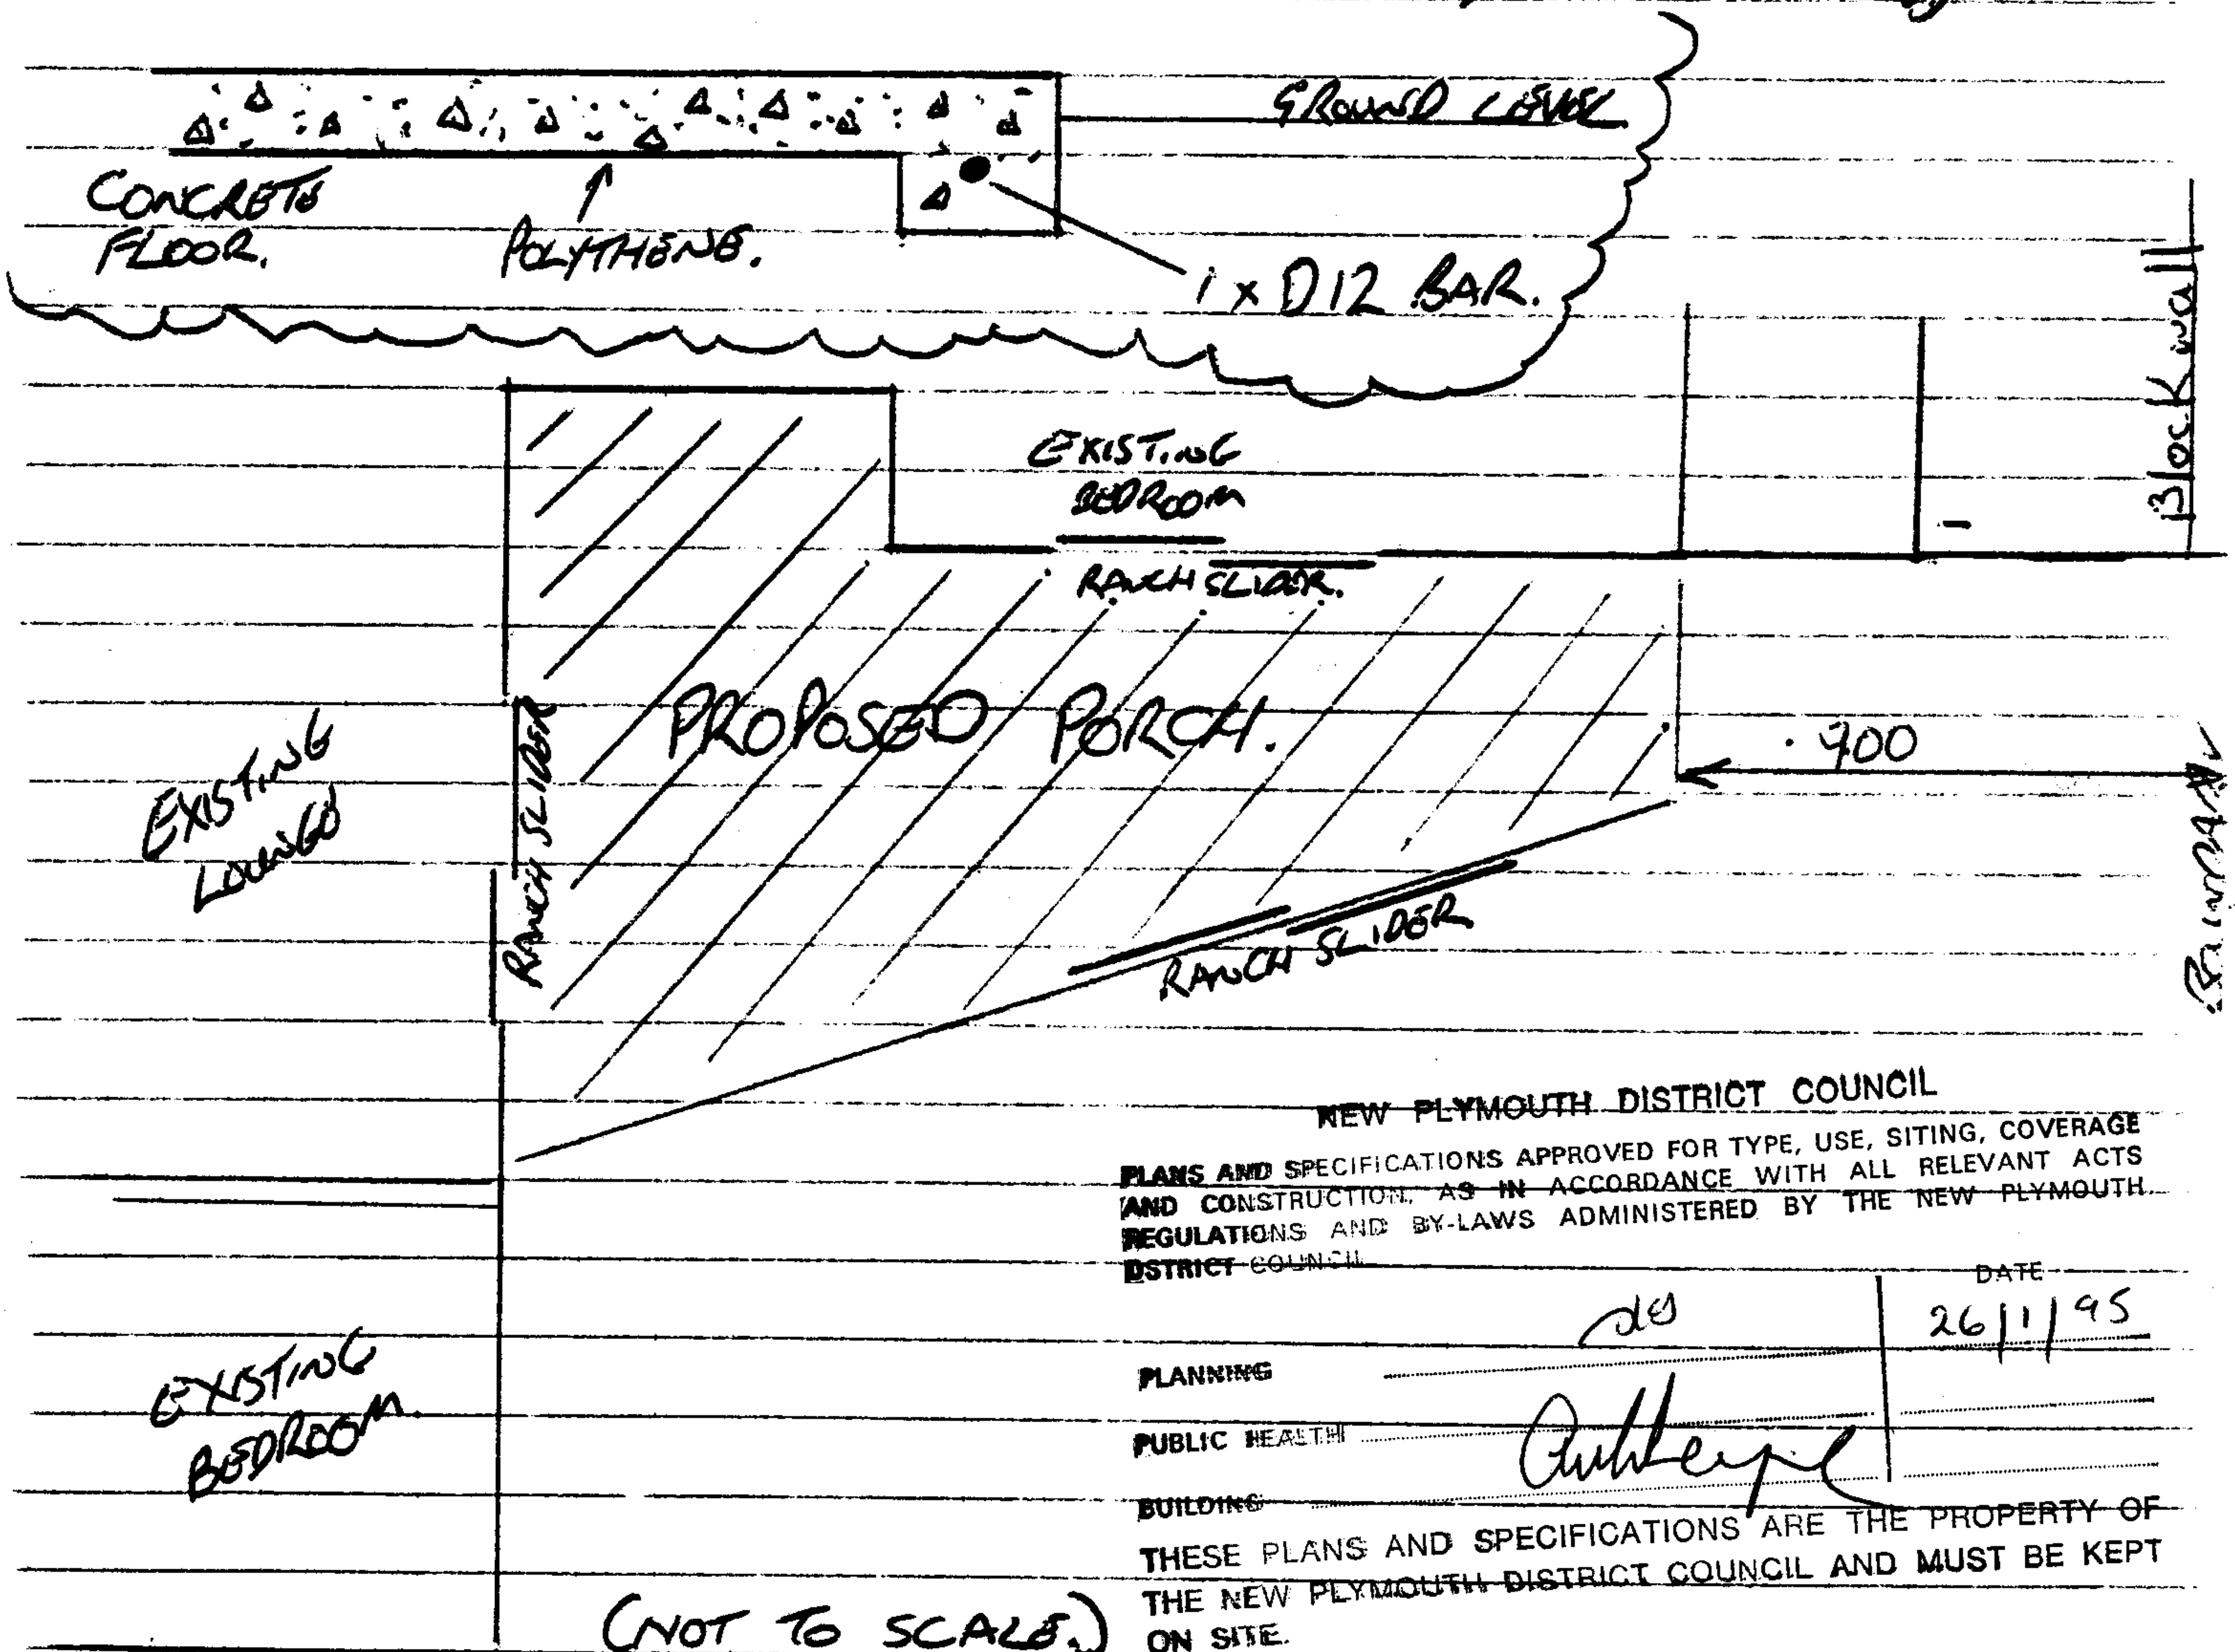 GROUND LEVEL
CONCRETE
FLOOR.
POLYTHENE.
1 x D12 BAR.
Block wall
EXISTING
BEDROOM
RANCH SLIDER.
PROPOSED PORCH.
RANCH SLIDER
EXISTING
LOUNGE
RANCH SLIDER
EXISTING
BEDROOM.
(NOT TO SCALE.)
NEW PLYMOUTH DISTRICT COUNCIL
PLANS AND SPECIFICATIONS APPROVED FOR TYPE, USE, SITING, COVERAGE
AND CONSTRUCTION, AS IN ACCORDANCE WITH ALL RELEVANT ACTS
REGULATIONS AND BY-LAWS ADMINISTERED BY THE NEW PLYMOUTH
DSTRICT COUNCIL
DATE
26/1/95
PLANNING
PUBLIC HEALTH
BUILDING
THESE PLANS AND SPECIFICATIONS ARE THE PROPERTY OF
THE NEW PLYMOUTH DISTRICT COUNCIL AND MUST BE KEPT
ON SITE.